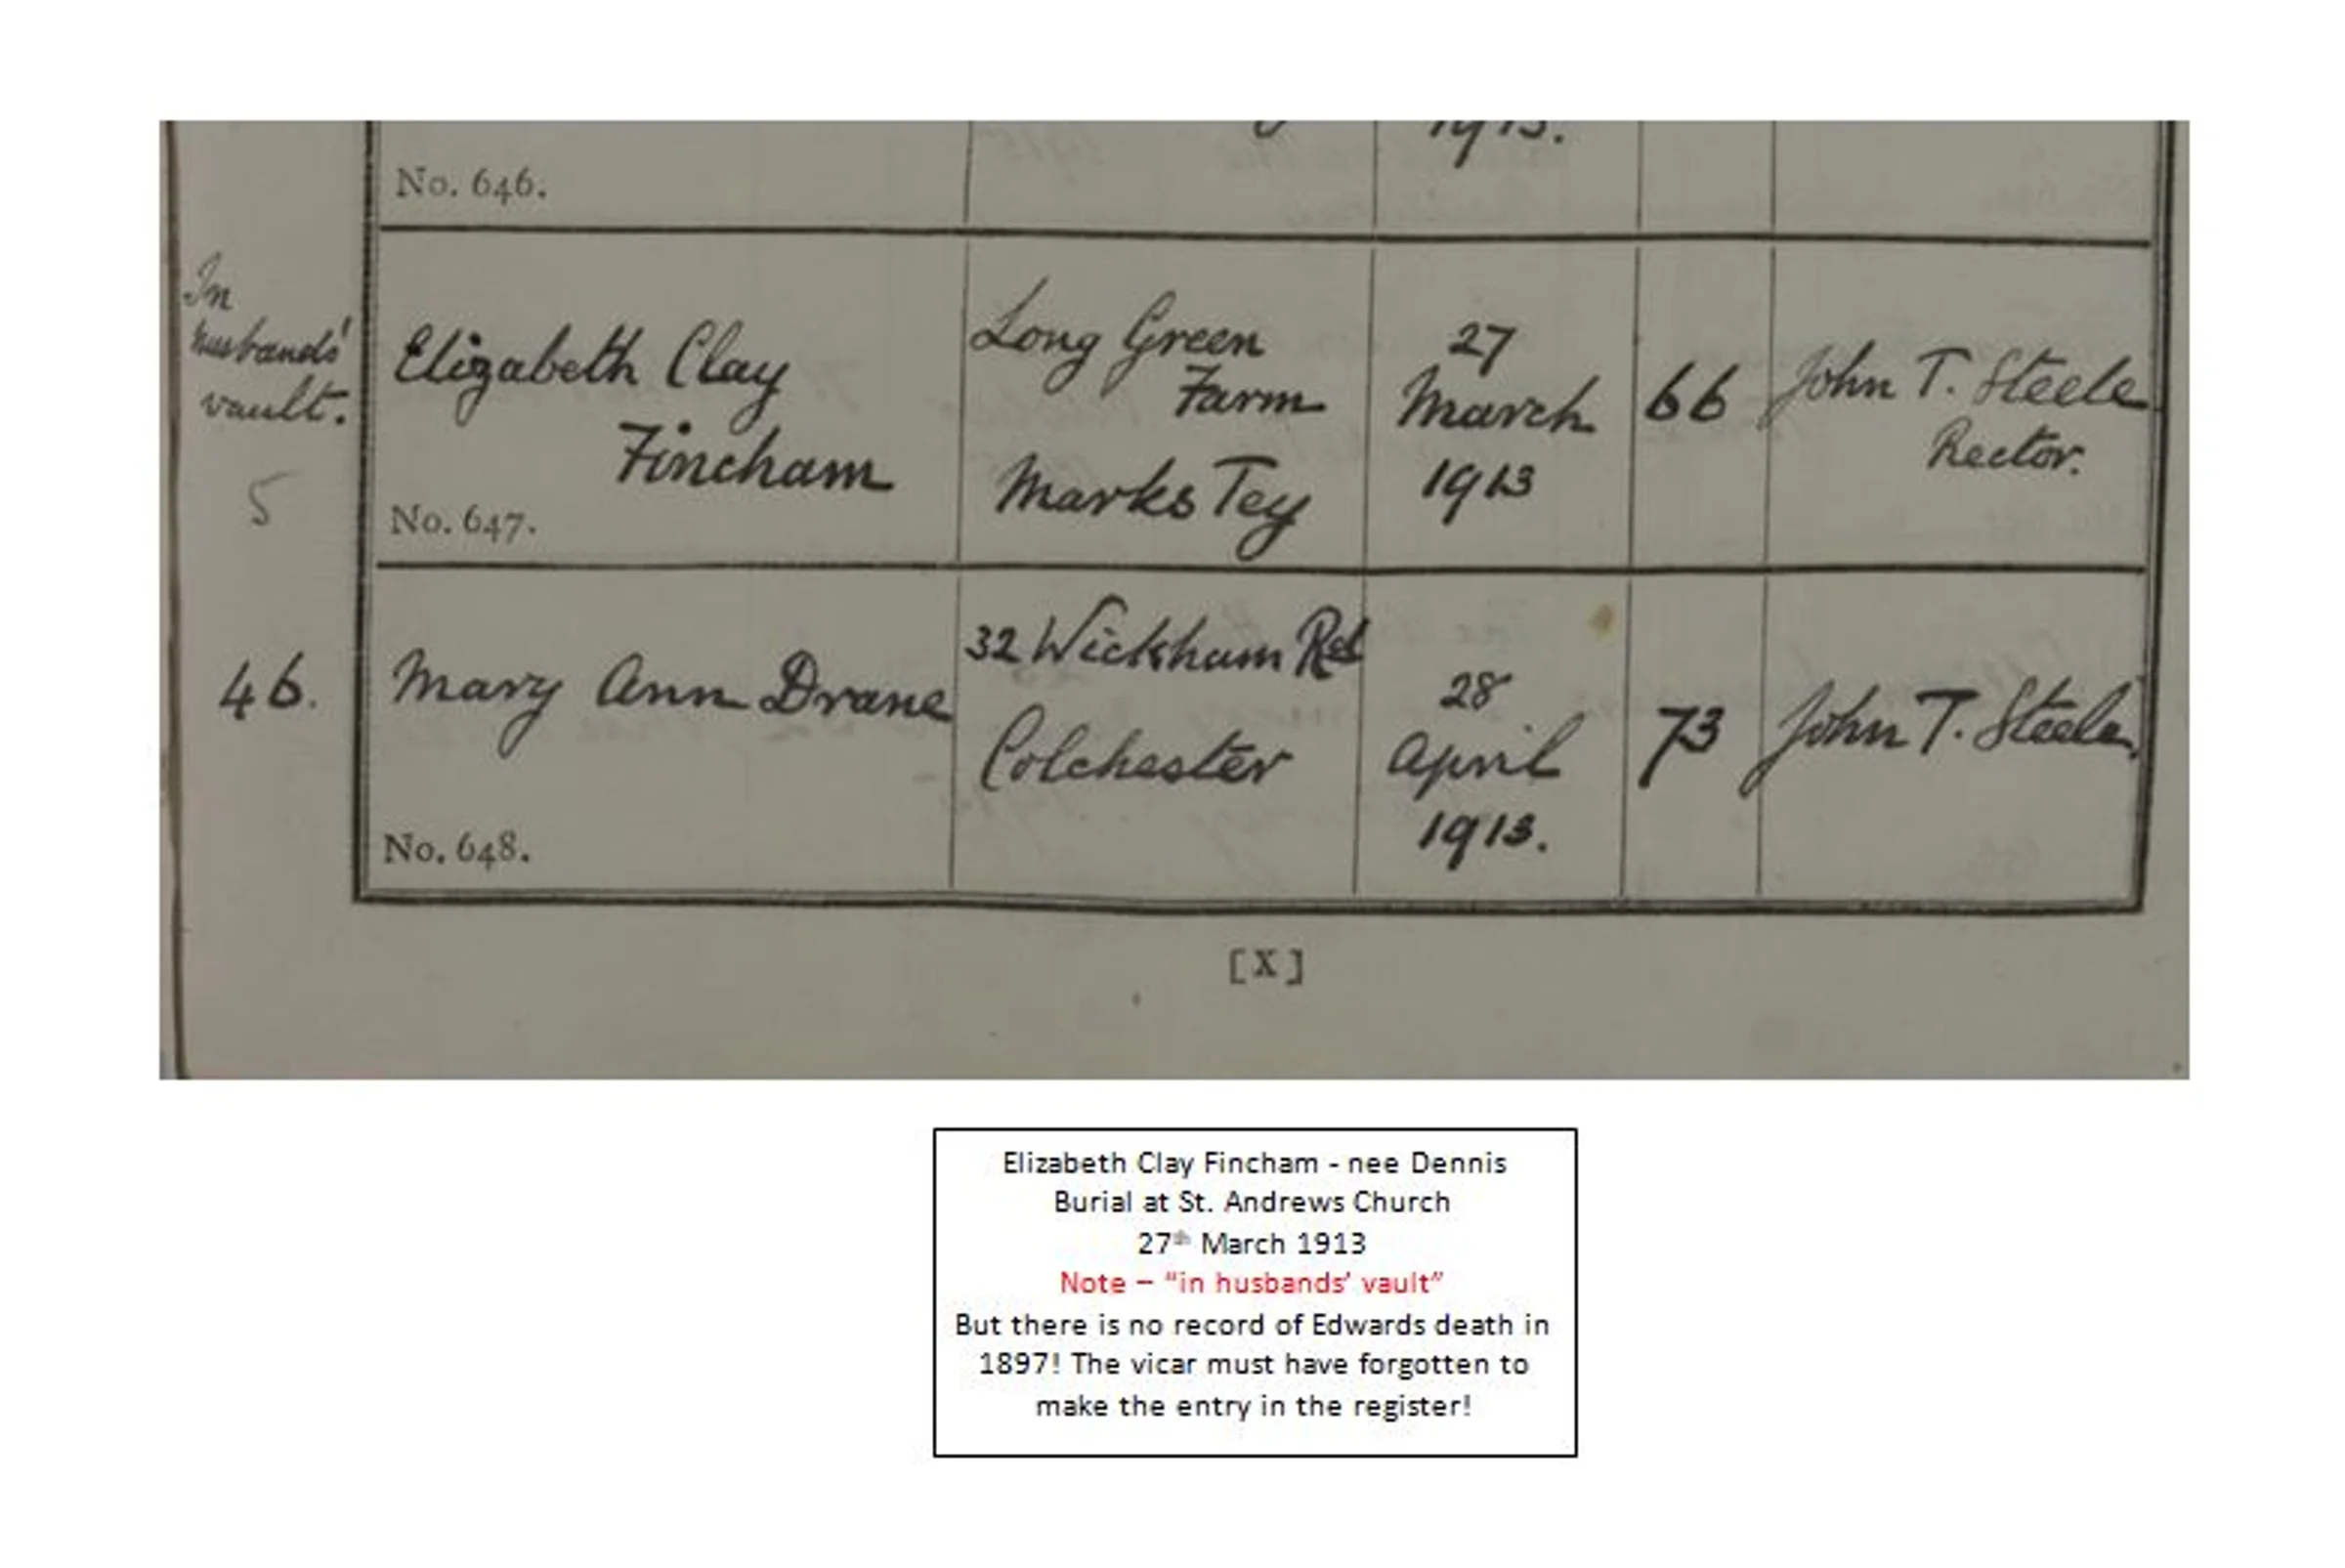 1913.
No. 646.
In
husbands'
vault.
5
Elizabeth Clay
Fincham
No. 647.
Long Green
Farm
Marks Tey
27
March
1913
66
John T. Steele
Rector.
46.
Mary Ann Drane
No. 648.
32 Wickham Rd
Colchester
28
April
1913.
73
John T. Steele.
[X]
Elizabeth Clay Fincham - nee Dennis
Burial at St. Andrews Church
27th March 1913
Note – "in husbands' vault"
But there is no record of Edwards death in
1897! The vicar must have forgotten to
make the entry in the register!